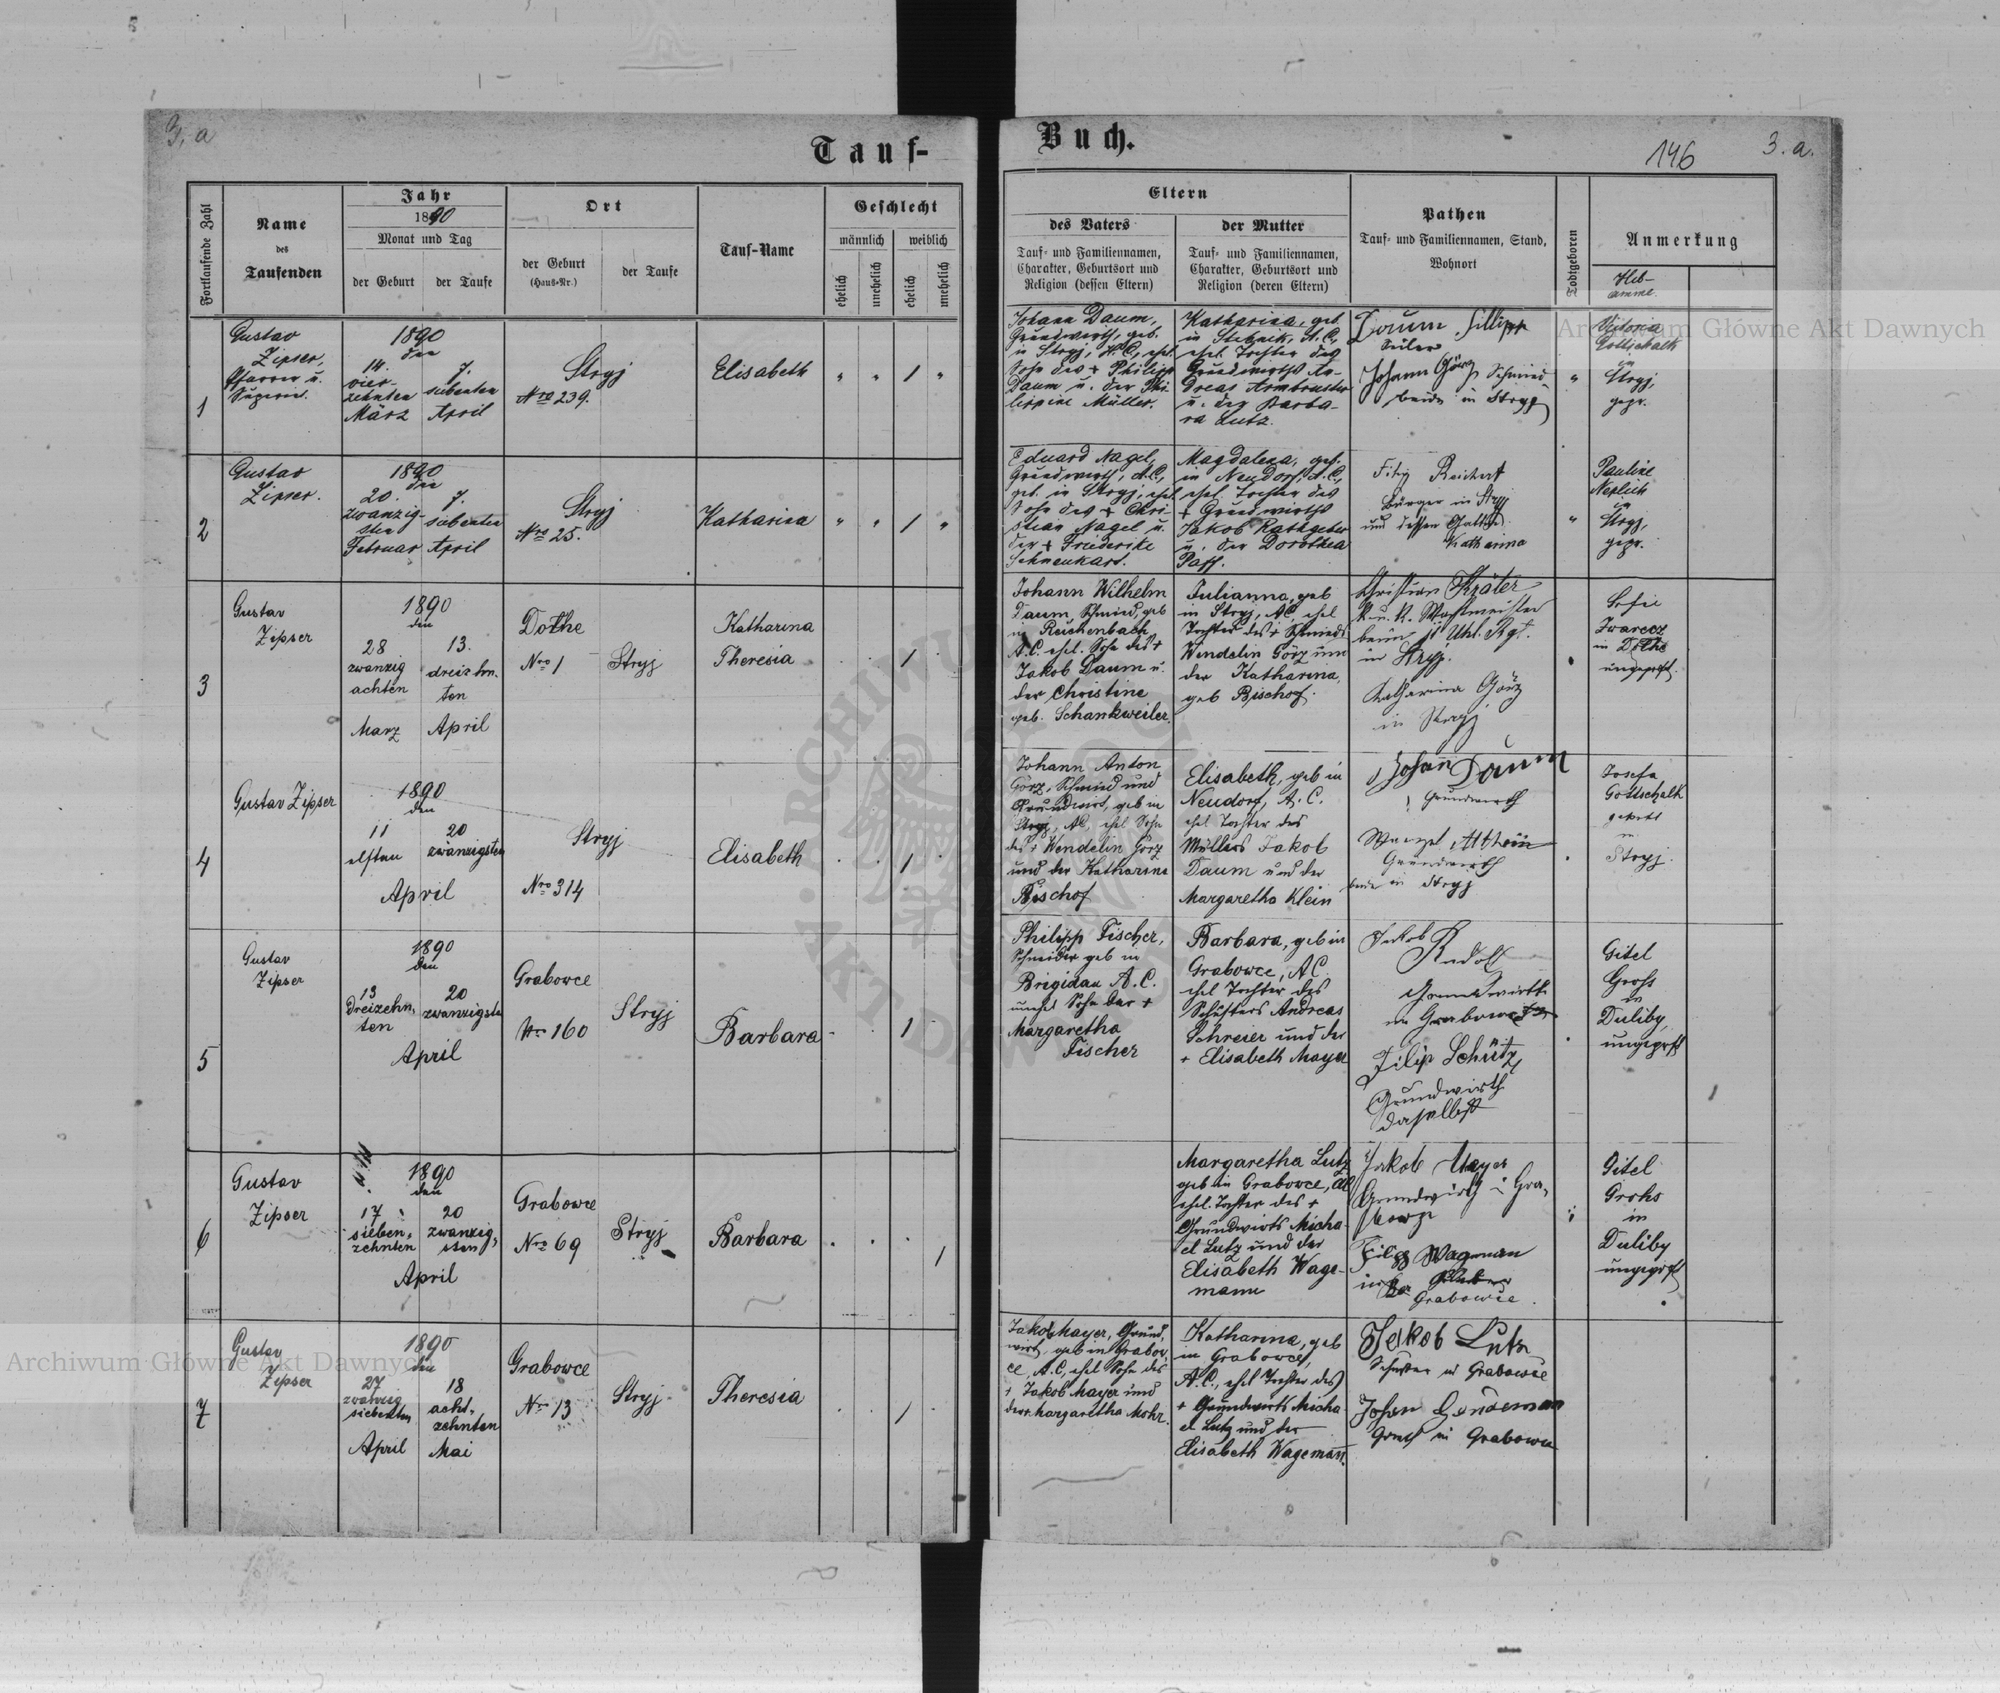 3, a
Tauf-
Buch.
146
3. a.
Fortlaufende Zahl
Name
des
Taufenden
Jahr
1890
Monat und Tag
der Geburt
der Taufe
Ort
der Geburt
(Haus-Nr.)
der Taufe
Tauf-Name
Geschlecht
männlich
weiblich
ehelich
unehelich
ehelich
unehelich
Eltern
des Vaters
Tauf- und Familiennamen,
Charakter, Geburtsort und
Religion (dessen Eltern)
der Mutter
Tauf- und Familiennamen,
Charakter, Geburtsort und
Religion (deren Eltern)
Pathen
Tauf- und Familiennamen, Stand,
Wohnort
Todtgeboren
Anmerkung
Heb-
amme.
1
Gustav
Zipser
Pfarrer u.
1890
den
14.
vier-
zehnten
März
7.
siebenten
April
Stryj
Nro 239.
Elisabeth
" " / "
Johann Daum,
Grundwirth, geb.
in Stryj, A.C., ehel.
Sohn des + Philipp
Daum u. der Phi-
lippine Müller.
Katharina, geb.
in Stebnik, A.C.,
ehel. Tochter des
Grundwirths An-
dreas Armbruster
u. der Barba-
ra Lutz.
Daum Fillipp
Johann Görz Schmied
beide in Stryj
"
Viktoria
Gottschalk
in
Stryj,
gepr.
2
Gustav
Zipser.
1890
den
20.
zwanzig-
sten
Februar
7.
siebenten
April
Stryj
Nro 25.
Katharina
" " / "
Eduard Nagel,
Grundwirth, A.C.,
geb. in Stryj, ehel.
Sohn des + Chri-
stian Nagel u.
der + Friederike
Magdalena, geb.
in Neudorf, A.C.,
ehel. Tochter des
+ Grundwirths
Jakob Rathgeber
u. der Dorothea
Paff.
Reichert
Bürger in Stryj
und dessen Gattin
Katharina
"
Pauline
Neplich
in
Stryj,
gepr.
3
Gustav
Zipser
1890
den
28
zwanzig
achten
März
13.
dreizehn-
ten
April
Dołhe
Nro 1
Stryj
Katharina
Theresia
/
Johann Wilhelm
Daum, Schmied, geb
in Reichenbach
A.C. ehel. Sohn des +
Jakob Daum u.
der Christine
geb. Schankweiler.
Julianna, geb
in Stryj, AC, ehel
Tochter des + Schmieds
Wendelin Görz und
der Katharina,
geb Bischof.
Christian
K. u. K. Wachtmeister
beim 11 Uhl. Rgt.
in Stryj.
Katharina Görz
in Stryj
Sofie
Zwarecz
in Dołhe
ungeprft.
4
Gustav Zipser
1890
den
11
elften
20
zwanzigsten
April
Stryj
Nro 314
Elisabeth
/
Johann Anton
Görz, Schmied und
Grundwirt, geb in
Stryj, AC, ehel Sohn
des + Wendelin Görz
und der Katharina
Bischof
Elisabeth, geb in
Neudorf, A. C.
ehel Tochter des
Müllers Jakob
Daum und der
Margaretha Klein
Johann Daum
Grundwirth
Grundwirth
beide in Stryj
Josefa
Gottschalk
geprft
in
Stryj.
5
Gustav
Zipser
1890
den
13
dreizehn-
ten
20
zwanzigsten
April
Grabowce
Nro 160
Stryj
Barbara
/
Philipp Fischer,
Schneider geb in
Brigidau A. C.
unehel Sohn der +
Margaretha
Fischer
Barbara, geb in
Grabowce, AC
ehel Tochter des
Schusters Andreas
Schreier und der
+ Elisabeth Mayer
Jakob
Rudolf
Grundwirth
in Grabowce
Filip Schütz
Grundwirth
daselbst
Gitel
Groß
in
Duliby
ungeprft
6
Gustav
Zipser
1890
den
17
sieben-
zehnten
20
zwanzig-
sten
April
Grabowce
Nro 69
Stryj
Barbara
/
Margaretha Lutz
geb in Grabowce, AC
ehel. Tochter des +
Grundwirts Micha-
el Lutz und der
Elisabeth Wage-
mann
Jakob Mayer
Grundwirth in Gra-
bowce
Filipp Wageman
in
Grabowce.
Gitel
Grohs
in
Duliby
ungeprft
7
Gustav
Zipser
1890
den
27
zwanzig
siebenten
April
18
acht-
zehnten
Mai
Grabowce
Nro 13
Stryj
Theresia
/
Jakob Mayer, Grund-
wirt, geb in Grabow-
ce, A.C, ehel Sohn des
+ Jakob Mayer und
der + Margaretha Mohr.
Katharina, geb
in Grabowce,
A.C., ehel Tochter des
+ Grundwirts Micha-
el Lutz und der
Elisabeth Wagemann.
Jakob Lutz
Schuster in Grabowce
Johan Gendeman
in Grabowce
Archiwum Główne Akt Dawnych
Archiwum Główne Akt Dawnych